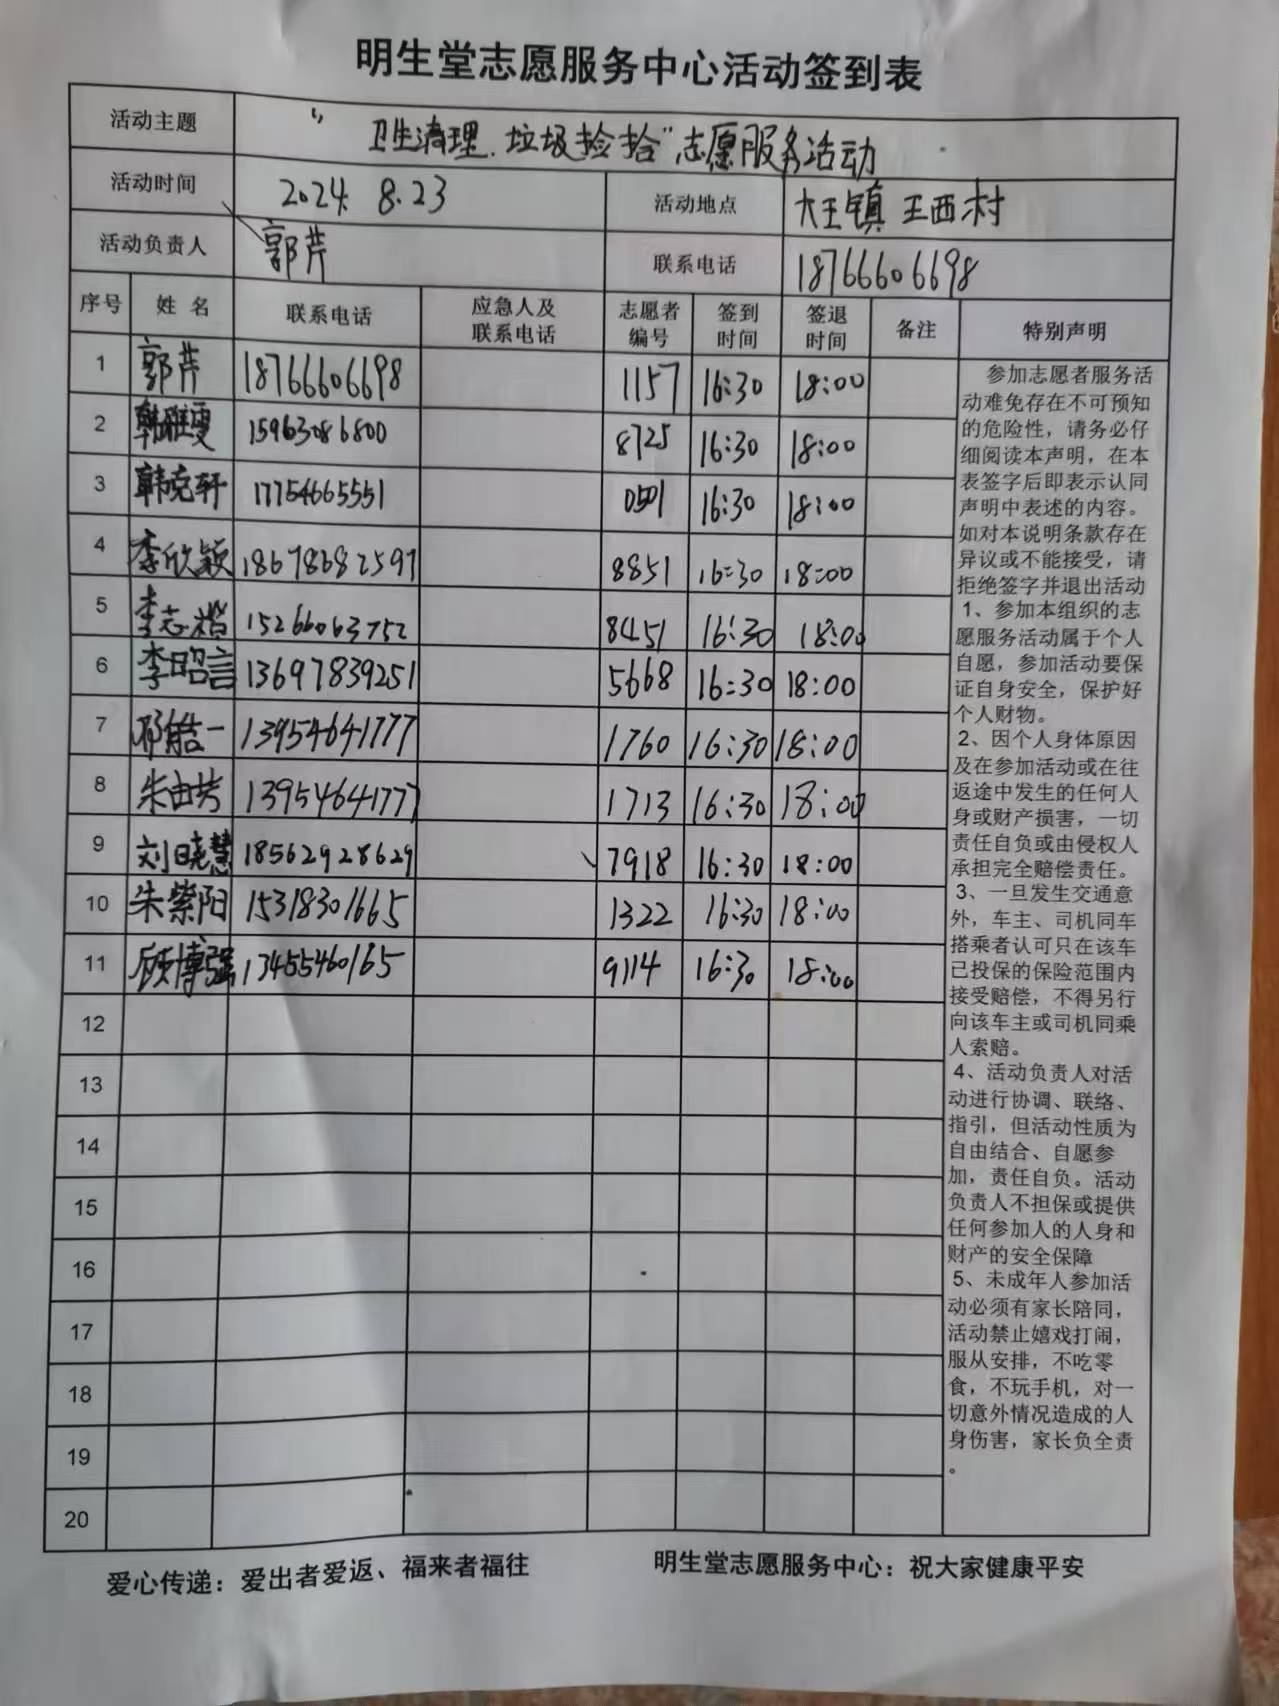 明生堂志愿服务中心活动签到表
活动主题 “卫生清理、垃圾捡拾”志愿服务活动
活动时间 2024. 8.23 活动地点 大王镇 王西村
活动负责人 郭芹 联系电话 18766606698
序号 姓名 联系电话 应急人及联系电话 志愿者编号 签到时间 签退时间 备注 特别声明
1 郭芹 18766606698 1157 16:30 18:00
2 韩雅雯 15963086800 8725 16:30 18:00
3 韩克轩 17754665551 0501 16:30 18:00
4 李欣颖 18678682597 8851 16:30 18:00
5 李志 15266063752 8451 16:30 18:00
6 李昭言 13697839251 5668 16:30 18:00
7 皓一 13954641777 1760 16:30 18:00
8 朱由芳 13954641777 1713 16:30 18:00
9 刘晓慧 18562928629 7918 16:30 18:00
10 朱紫阳 15318301665 1322 16:30 18:00
11 顾博强 13455460165 9114 16:30 18:00
12
13
14
15
16
17
18
19
20
参加志愿者服务活
动难免存在不可预知
的危险性，请务必仔
细阅读本声明，在本
表签字后即表示认同
声明中表述的内容。
如对本说明条款存在
异议或不能接受，请
拒绝签字并退出活动
1、参加本组织的志
愿服务活动属于个人
自愿，参加活动要保
证自身安全，保护好
个人财物。
2、因个人身体原因
及在参加活动或在往
返途中发生的任何人
身或财产损害，一切
责任自负或由侵权人
承担完全赔偿责任。
3、一旦发生交通意
外，车主、司机同车
搭乘者认可只在该车
已投保的保险范围内
接受赔偿，不得另行
向该车主或司机同乘
人索赔。
4、活动负责人对活
动进行协调、联络、
指引，但活动性质为
自由结合、自愿参
加，责任自负。活动
负责人不担保或提供
任何参加人的人身和
财产的安全保障
5、未成年人参加活
动必须有家长陪同，
活动禁止嬉戏打闹，
服从安排，不吃零
食，不玩手机，对一
切意外情况造成的人
身伤害，家长负全责
。
爱心传递：爱出者爱返、福来者福往 明生堂志愿服务中心：祝大家健康平安